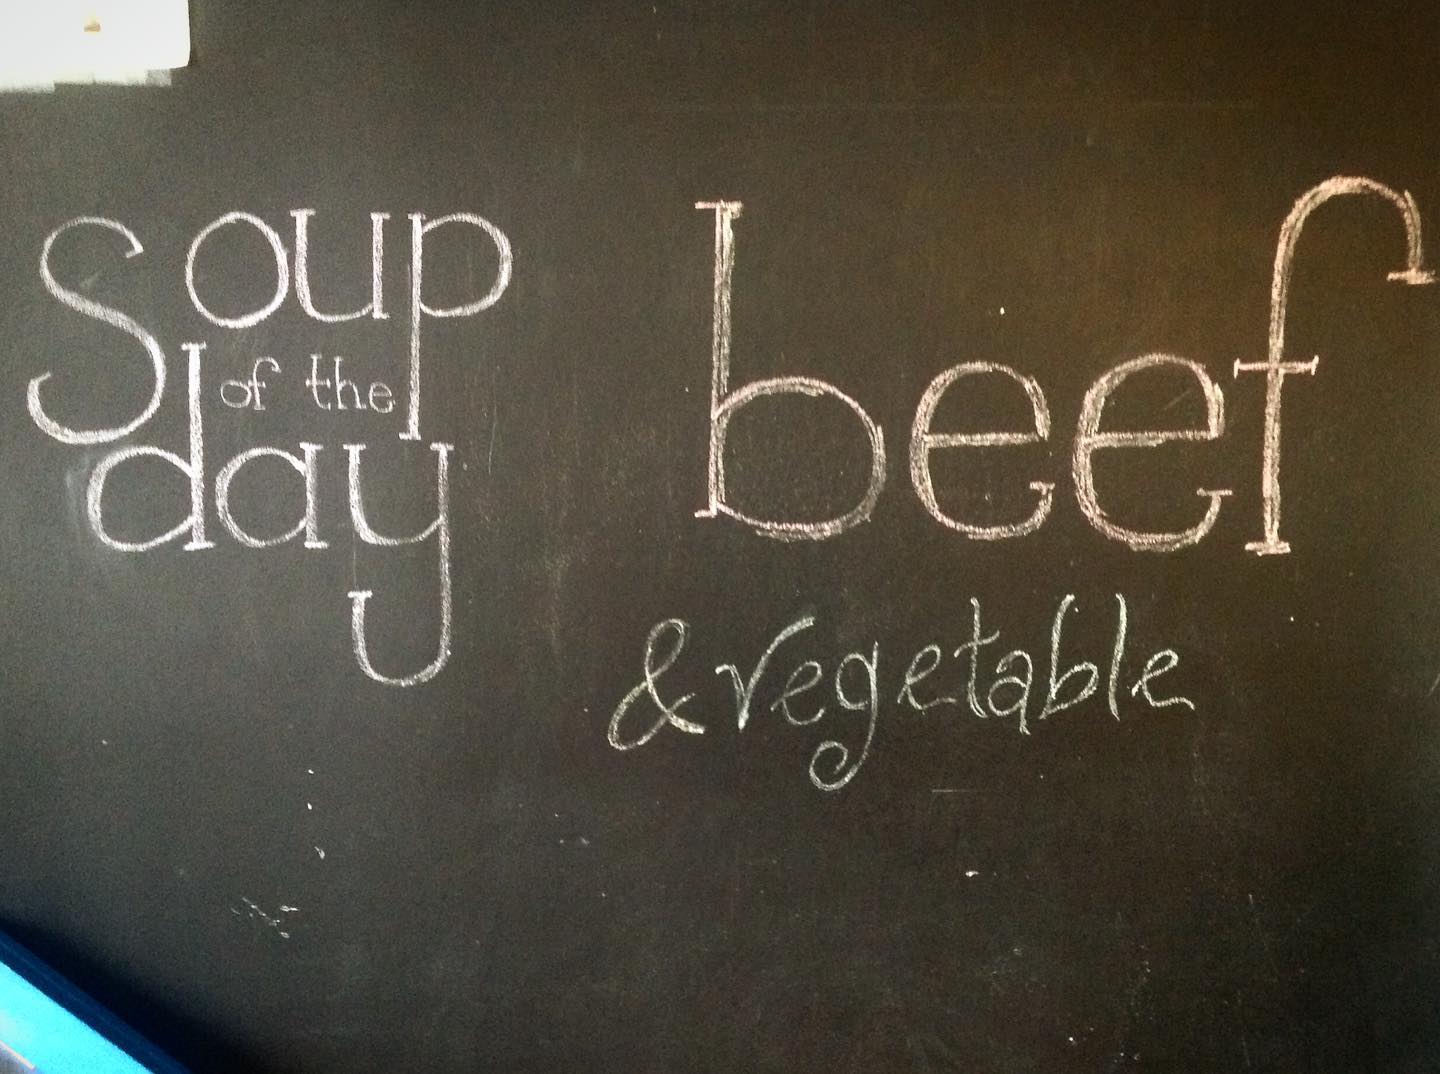 Soup
of the
day
beef
& vegetable